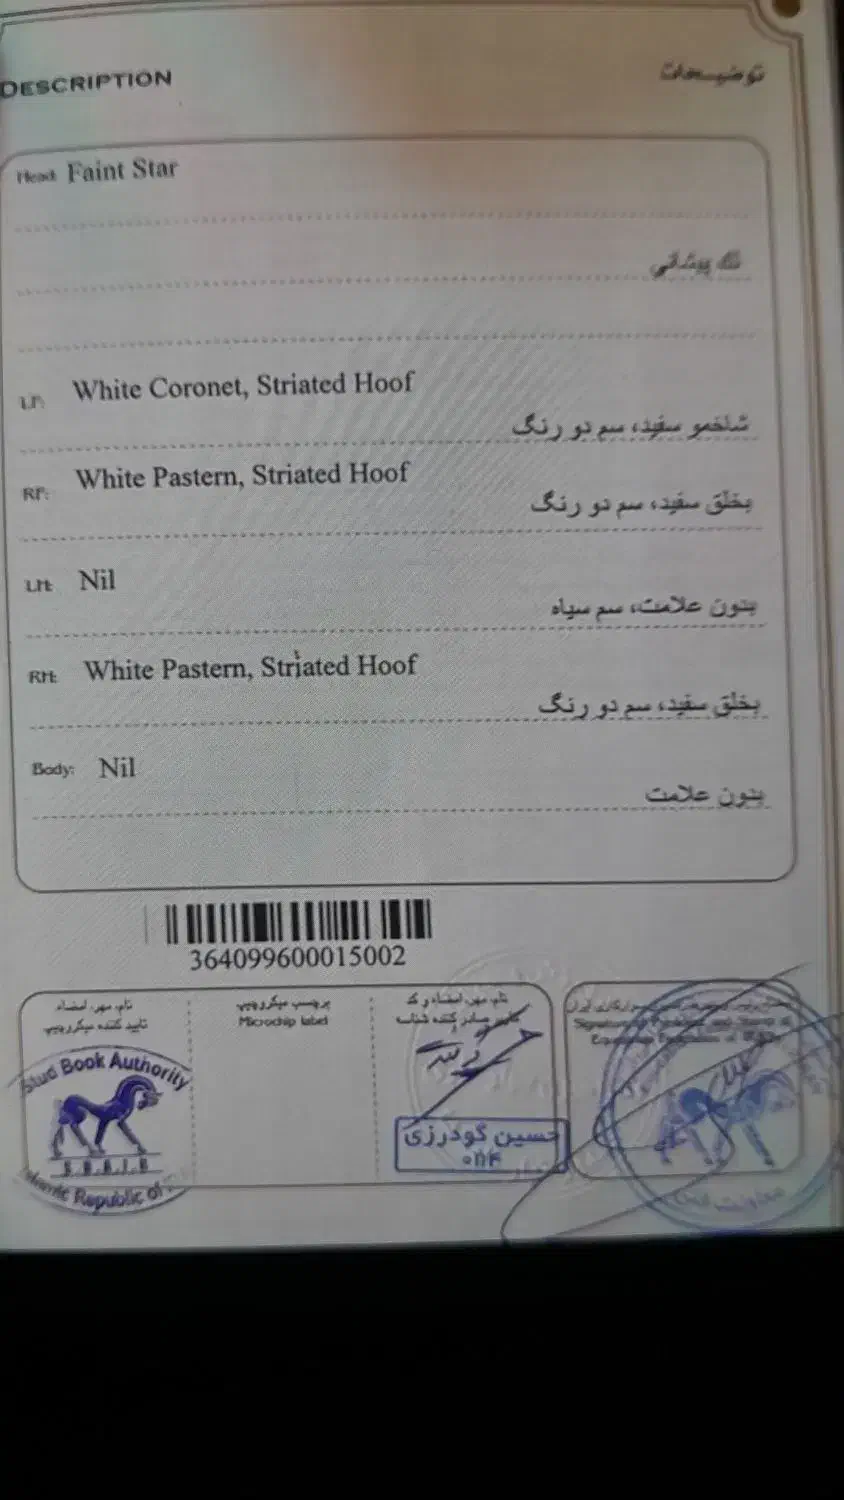 DESCRIPTION
توضیحات
Head: Faint Star
لکه پیشانی
LF: White Coronet, Striated Hoof
شاخمو سفید، سم دو رنگ
RF: White Pastern, Striated Hoof
بخلق سفید، سم دو رنگ
LH: Nil
بدون علامت، سم سیاه
RH: White Pastern, Striated Hoof
بخلق سفید، سم دو رنگ
Body: Nil
بدون علامت
364099600015002
نام، مهر، امضاء
تایید کننده میکروچیپ
برچسب میکروچیپ
Microchip label
نام، مهر، امضاء و کد
صادر کننده شناسه
Signature of President and Stamp of
Equestrian Federation of
Stud Book Authority
S.B.A.I.R
Islamic Republic of
حسین گودرزی